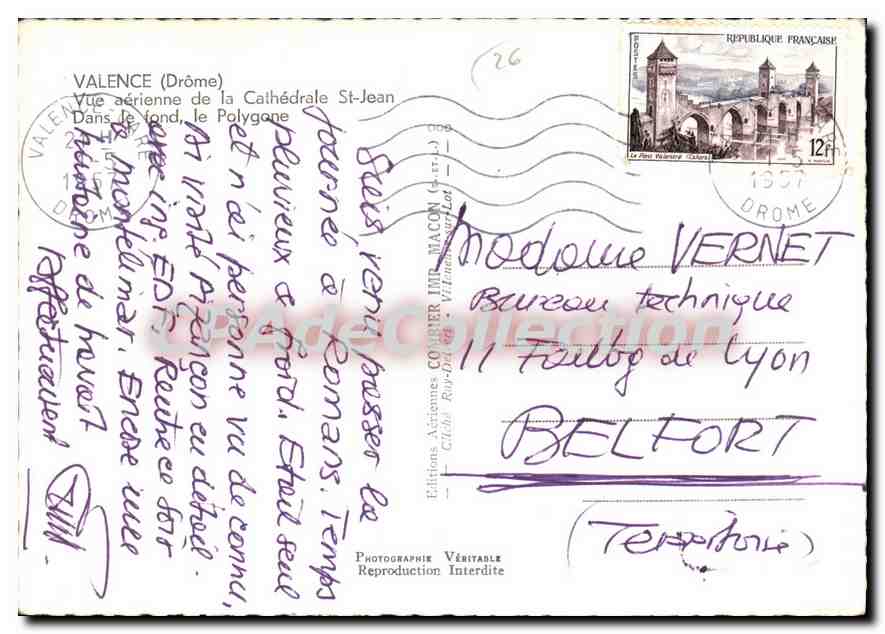 VALENCE (Drôme)
Vue aérienne de la Cathédrale St-Jean
Dans le fond, le Polygone
26
REPUBLIQUE FRANÇAISE
POSTES
Le Pont Valentré (Cahors)
12F
VALENCE GARE
1957
DROME
1957
DROME
Suis venu passer la
journée à Romans. Temps
pluvieux & froid. Etait seul
et n'ai personne vu de connu,
ai visité en détail
avec ing. EDF. Rentre ce soir
à Montélimar. Encore une
de travail
Affectueusement
Editions Aériennes COMBIER IMP. MACON (S.-ET-L.)
Cliché Ray-Delvert - Villeneuve-sur-Lot
Madame VERNET
Bureau technique
11 Faubg de Lyon
BELFORT
(Territoire)
PHOTOGRAPHIE VÉRITABLE
Reproduction Interdite
CPAdeCollection